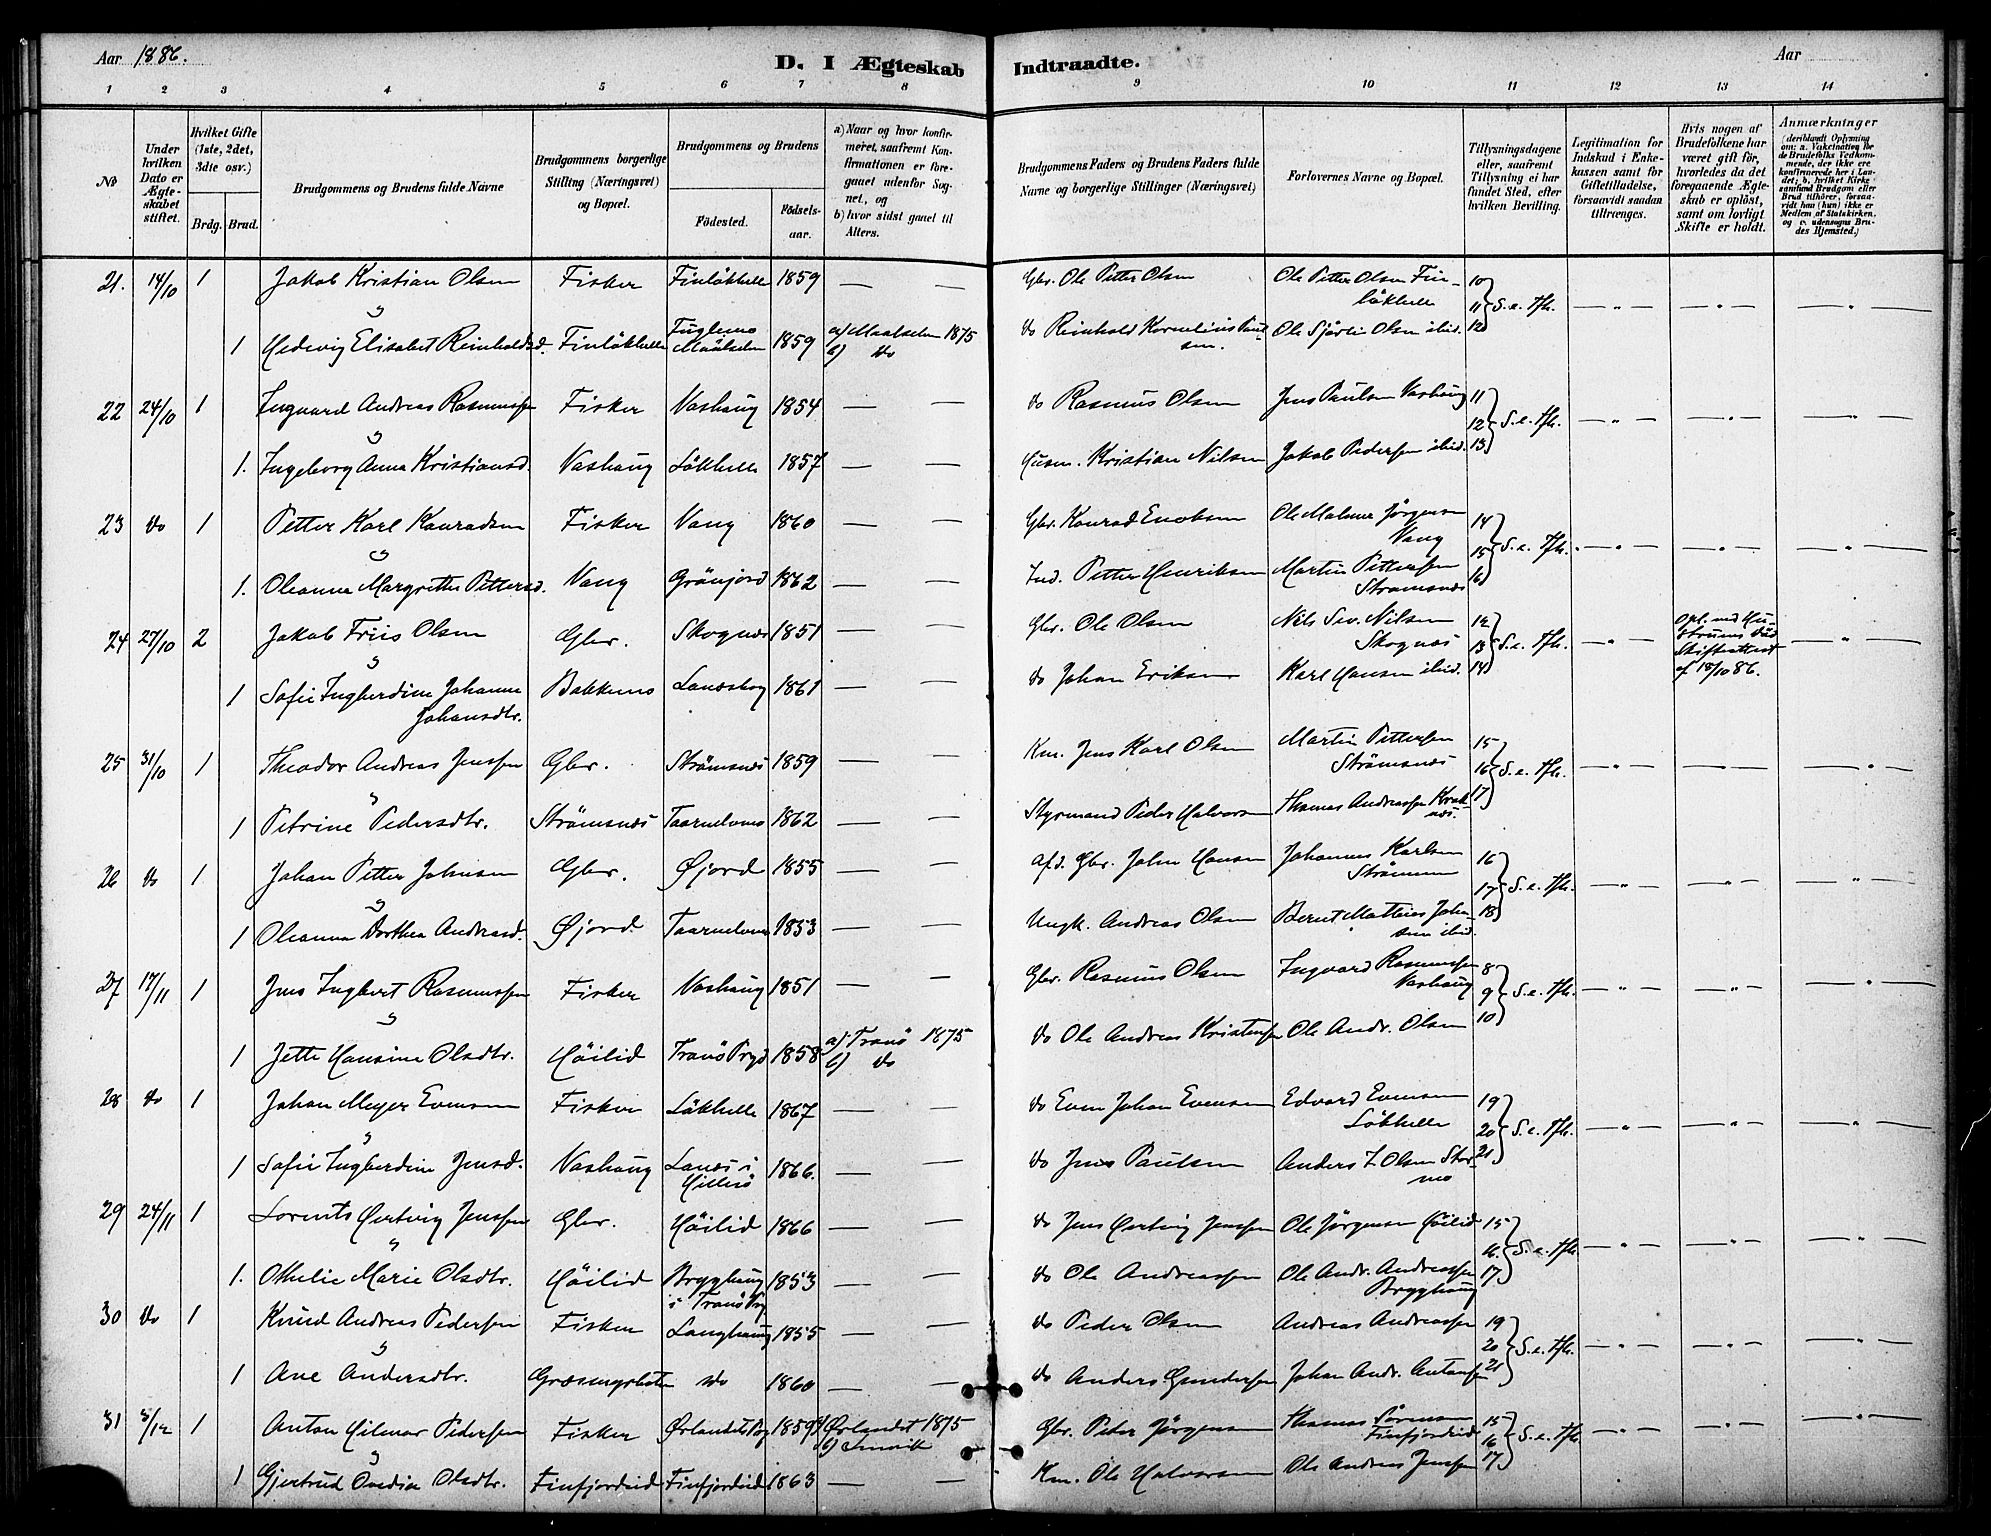 Aar 1886.
D. I Ægteskab Indtraadte.
Aar
1 2 3 4 5 6 7 8 9 10 11 12 13 14
No
Under hvilken Dato er Ægteskabet stiftet.
Hvilket Gifte (1ste, 2det, 3die osv.)
Brdg. Brud.
Brudgommens og Brudens fulde Navne
Brudgommens borgerlige Stilling (Næringsvei) og Bopæl.
Brudgommens og Brudens
Fødested.
Fødselsaar.
a) Naar og hvor konfirmeret, saafremt Konfirmationen er foregaaet udenfor Sognet, og
b) hvor sidst gaaet til Alters.
Brudgommens Faders og Brudens Faders fulde Navne og borgerlige Stillinger (Næringsvei)
Forlovernes Navne og Bopæl.
Tillysningsdagene eller, saafremt Tillysning ei har fundet Sted, efter hvilken Bevilling.
Legitimation for Indskud i Enkekassen samt for Giftetilladelse, forsaavidt saadan tiltrænges.
Hvis nogen af Brudefolkene har været gift før, hvorledes da det foregaaende Ægteskab er opløst, samt om lovligt Skifte er holdt.
Anmærkninger
(deriblandt Oplysning om: a. Vakcination for de Brudefolks Vedkommende, der ikke ere konfirmerede her i Landet; b. hvilket Kirkesamfund Brudgom eller Brud tilhører, forsaavidt han (hun) ikke er Medlem af Statskirken, og c. udensogns Brudes Hjemsted.)
21. 14/10 1 Jakob Kristian Olsen Fisker Finlökhelle 1859 — — Gbr. Ole Petter Olsen Ole Petter Olsen Finlökhelle 10 11 12 S. e. Tfh.
1 Hedevig Elisabet Reinholdsd. Finlökhelle Fuglemo Maalselven 1859 a) Maalselven 1875 b) do do Reinhold Kornelius Paulsen. Ole Sjørlin Olsen ibid.
22 24/10 1 Ingvard Andreas Rasmussen Fisker Vashaug 1854 — — do Rasmus Olsen Jens Paulsen Vashaug 11 12 13 S. e. Tfh.
1. Ingeborg Anna Kristiansd. Vashaug Lökhelle 1857 — — Husm. Kristian Nilsen Jakob Pedersen ibid.
23 do 1 Petter Karl Konradsen Fisker Vang 1860 — — Gbr. Konrad Enoksen Ole Malmer Jørgensen Vang 14 15 16 S. e. Tfh.
1. Oleanna Margrethe Pettersd. Vang Grönjord 1862 — — Ind. Petter Henriksen Martin Pettersen Strömsnæs
24 27/10 2 Jakob Friis Olsen Gbr. Skognæs 1851 — — Gbr. Ole Olsen Nils Siv. Nilsen Skognæs 12 13 14 S. e. Tfh. Opl. ved Hustruens Död Skifteattest af 18/10 86.
1 Sofie Ingberdine Johanna Johansdtr. Bakkemo Landskog 1861 — — do Johan Eriksen Karl Hansen ibid.
25 31/10 1 Theodor Andreas Jenssen Gbr. Strömsnæs 1859 — — Km. Jens Karl Olsen Martin Pettersen Strömsnæs 15 16 17 S. e. Tfh.
1 Petrine Pedersdtr. Strömsnæs Taarnelvmo 1862 — — Styrmand Peder Halvorsen Thomas Andreassen
26 do 1 Johan Petter Johnsen Gbr. Øjord 1855 — — Afd. Gbr. John Hansen Johannes Karlsen Strömmen 16 17 18 S. e. Tfh.
1 Oleanna Dorthea Andreasd. Øjord Taarnelvmo 1853 — — Ungk. Andreas Olsen Bernt Mathias Johnsen ibid.
27 17/11 1 Jens Ingbert Rasmussen Fisker Vashaug 1851 — — Gbr. Rasmus Olsen Ingvard Rasmussen Vashaug 8 9 10 S. e. Tfh.
1 Jette Hansine Olsdtr. Höilid Tranö Prgd 1858 a) Tranö 1875 b) do do Ole Andreas Kristensen Ole Andr. Olsen
28 do 1 Johan Meyer Evensen Fisker Lökhelle 1867 — — do Even Johan Evensen Edvard Evensen Lökhelle 19 20 21 S. e. Tfh.
1 Sofie Ingberdine Jensd. Vashaug Lanæs i Hillesö 1866. — — do Jens Paulsen Anders Z. Olsen Stormo
29 24/11 1 Lorents Hertvig Jenssen Gbr. Höilid 1866 — — do Jens Hertvig Jenssen Ole Jørgensen Höilid 15 16. 17 S. e. Tfh.
1. Othelie Marie Olsdtr. Höilid Brygghaug i Tranö Prg 1853 — — do Ole Andreassen Ole Andr. Andreassen Brygghaug
30 do 1 Knud Andreas Pedersen Fisker Langhaug 1855 — — do Peder Olsen Andreas Andreassen 19 20 21 S. e. Tfh.
1 Ane Andersdtr. Græsmyrbotn do 1860 — — do Anders Gundersen Johan Andr. Antonsen
31 3/12 1 Anton Hilmar Pedersen Fisker Ørlandets Prg 1859 a) Ørlandet 1875 b) Senvik Gbr. Peder Jørgensen Thomas Sörensen Finfjordeid 15 16 17 S. e. Tfh.
1 Gjertrud Ovedia Olsdtr. Finfjordeid Finfjordeid 1863 — — Km. Ole Halvorsen Ole Andreas Jenssen